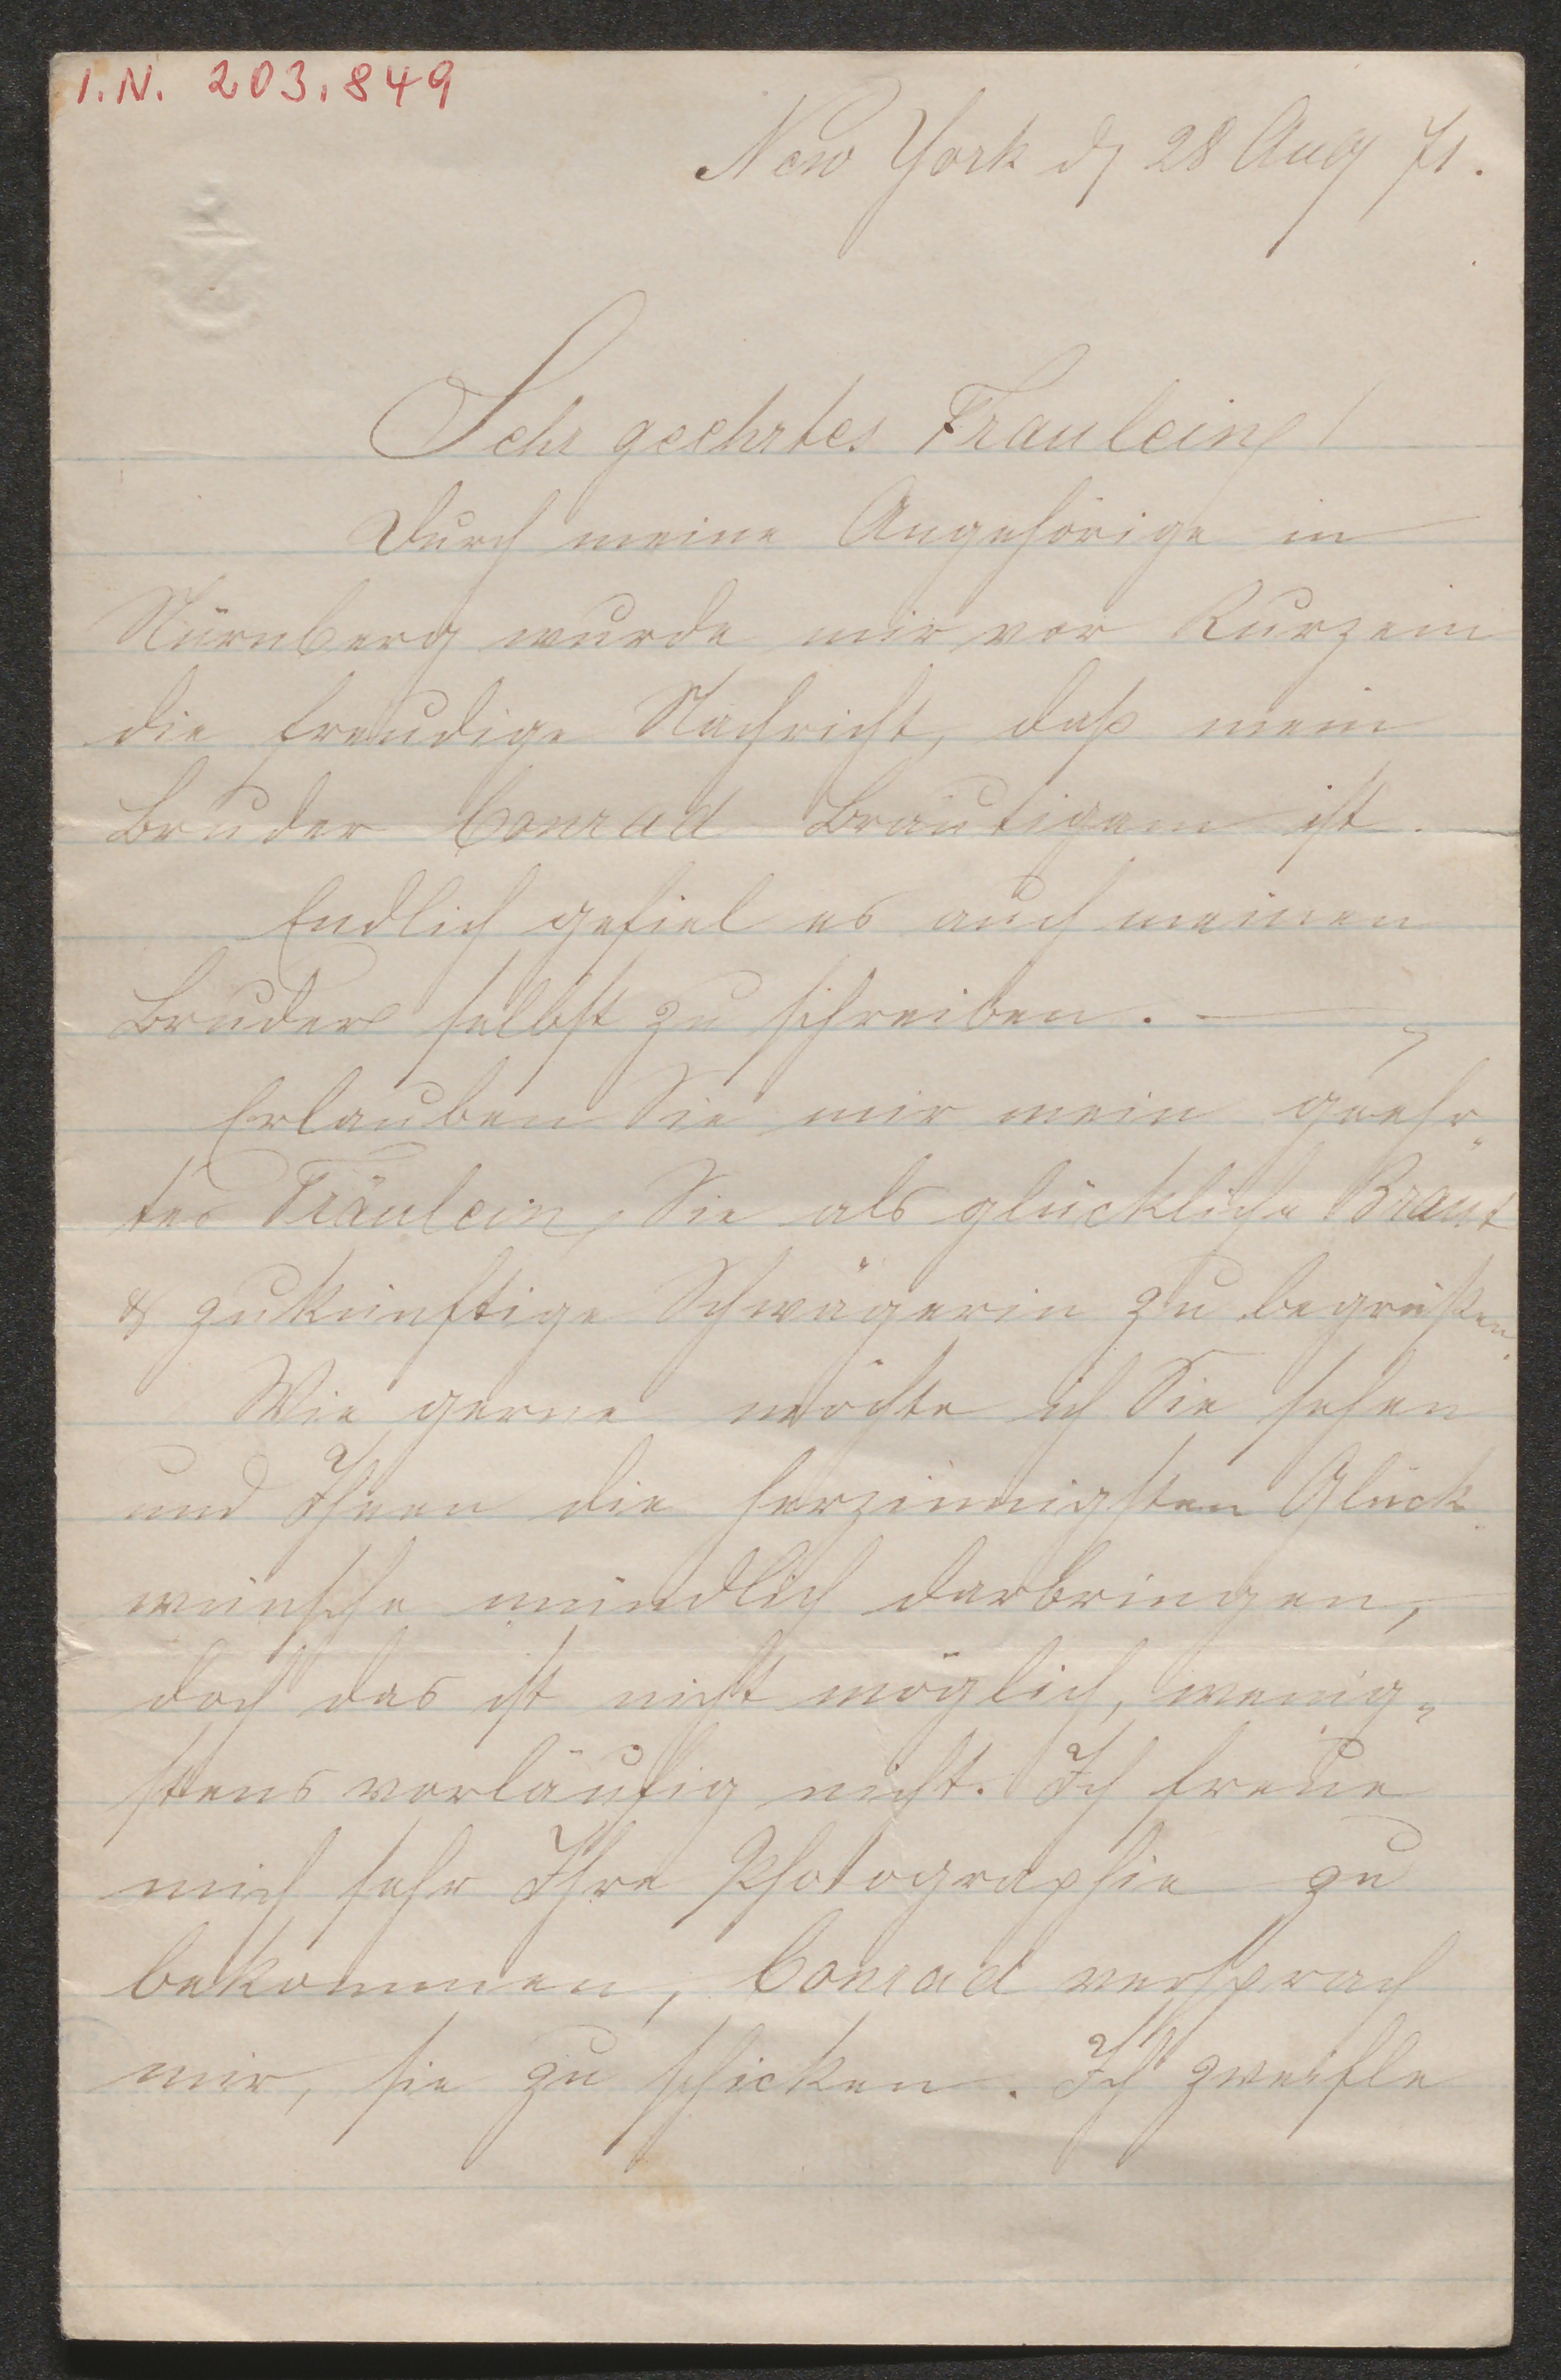 I.N. 203.849
New York d 28 Aug 71.
Sehr geehrtes Fraulein!
Durch meine Angehörige in
Nürnberg wurde mir vor Kurzem
die freudige Nachricht, daß mein
Bruder Conrad Bräutigam ist.
Endlich gefiel es auch meinen
Bruder selbst zu schreiben. —
Erlauben Sie mir mein geehr„
tes Fräulein, Sie als glückliche Braut
& zukünftige Schwägerin zu begrüßen.
Wie gerne möchte ich Sie sehen
und Ihnen die herzinnigsten Glück„
wünsche mündlich darbringen,
doch das ist nicht möglich, wenig„
stens vorläufig nicht. Ich freue
mich sehr Ihre Photographie zu
bekommen, Conrad versprach
mir, sie zu schicken. Ich zweifle